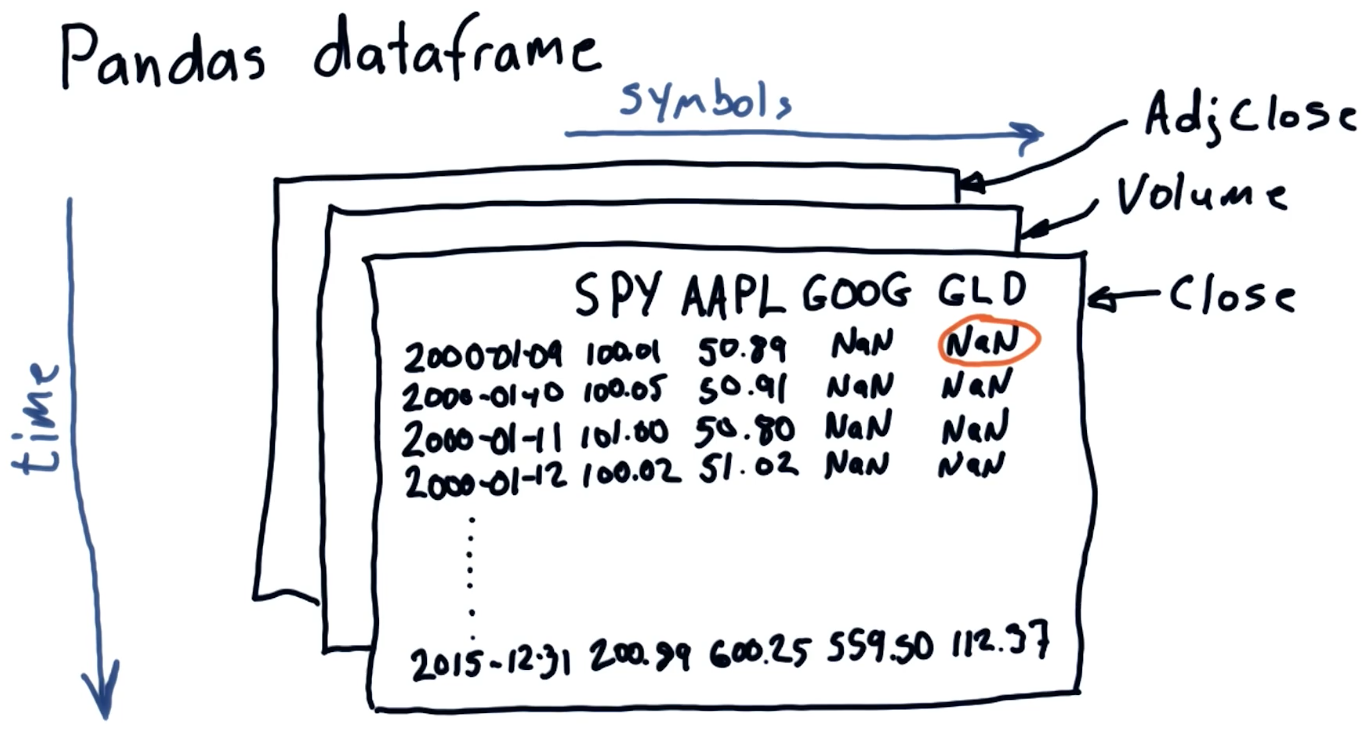 Pandas dataframe
symbols
AdjClose
Volume
Close
time
SPY AAPL GOOG GLD
2000-01-09 100.01 50.89 NaN NaN
2000-01-10 100.05 50.91 NaN NaN
2000-01-11 101.00 50.80 NaN NaN
2000-01-12 100.02 51.02 NaN NaN
2015-12-31 200.89 600.25 559.50 112.37